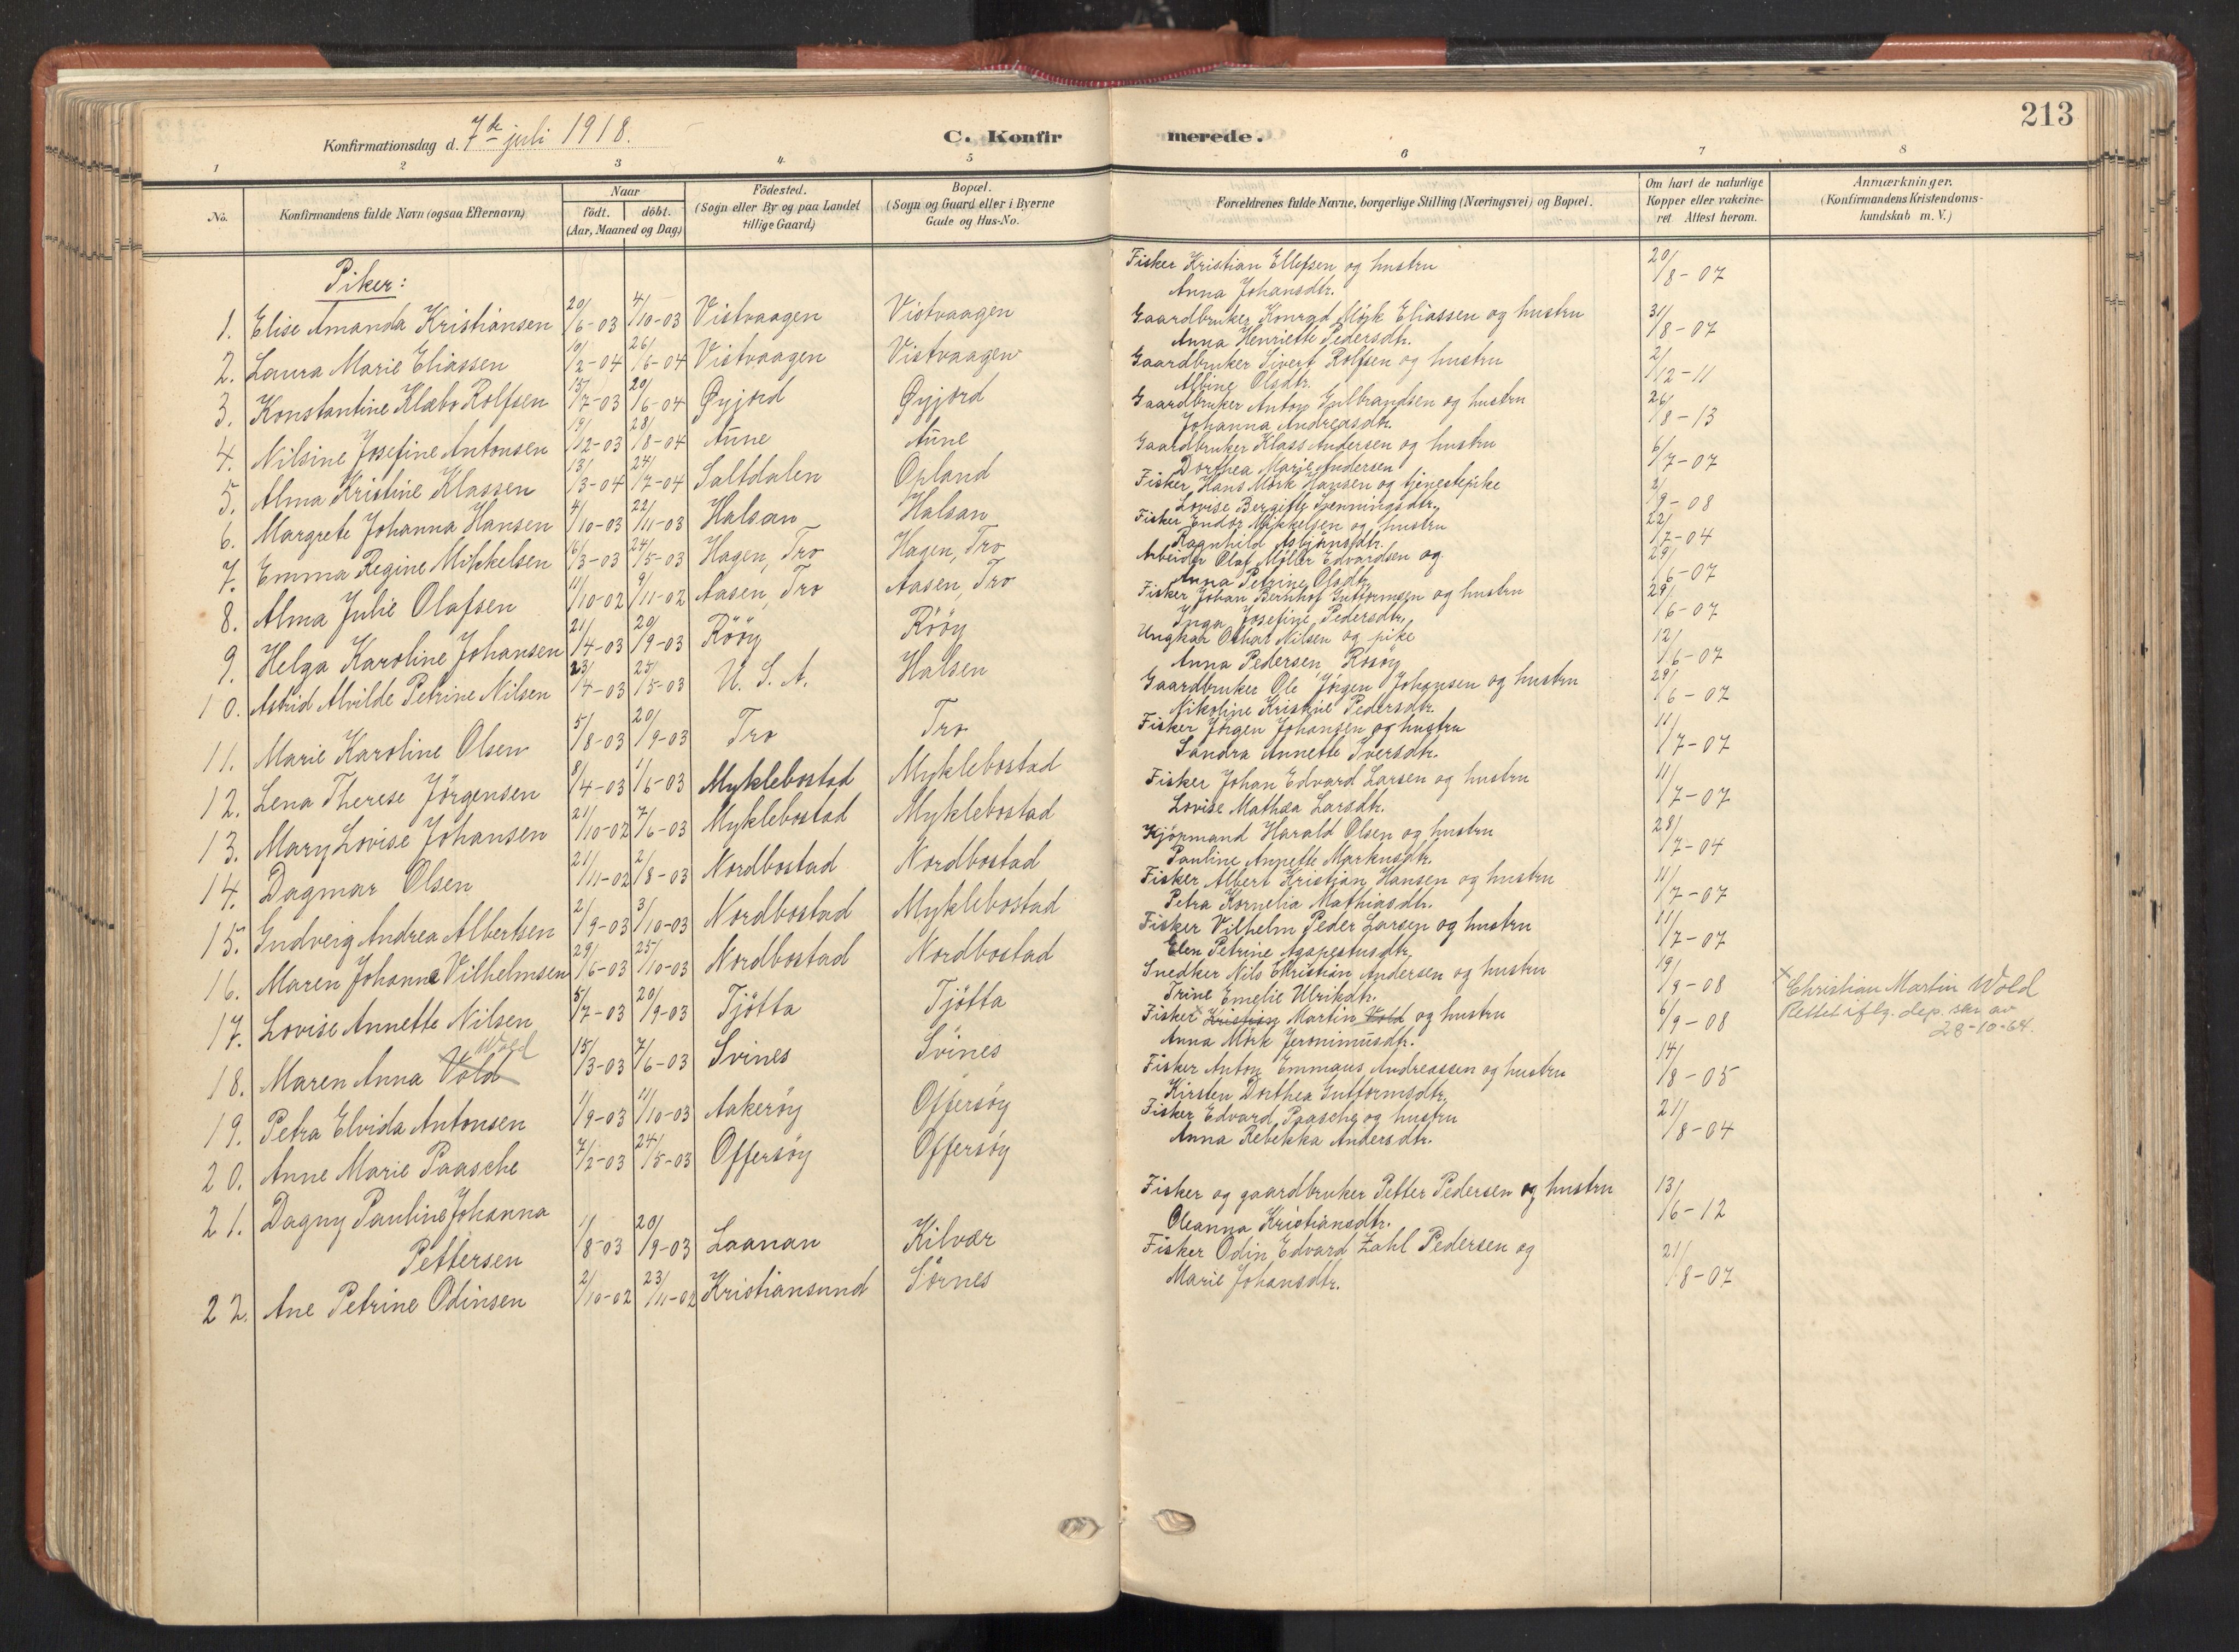 213
Konfirmationsdag d. 7de juli 1918.
C. Konfirmerede.
1 2 3 4 5 6 7 8
No.
Konfirmandens fulde Navn (ogsaa Efternavn)
Naar
födt. döbt.
(Aar, Maaned og Dag)
Födested.
(Sogn eller By og paa Landet
tillige Gaard)
Bopæl.
(Sogn og Gaard eller i Byerne
Gade og Hus-No.
Forældrenes fulde Navne, borgerlige Stilling (Næringsvei) og Bopæl.
Om havt de naturlige
Kopper eller vakcine-
ret Attest herom.
Anmærkninger.
(Konfirmandens Kristendoms-
kundskab m. V.)
Piker:
1. Elise Amanda Kristiansen 20/6-03 4/10-03 Vistvaagen Vistvaagen
2. Laura Marie Eliassen 10/2-04 26/6-04 Vistvaagen Vistvaagen
3. Konstantine Klæbo Rolfsen 15/7-03 20/6-04 Øyjord Øyjord
4. Nilsine Josefine Antonsen 19/12-03 28/8-04 Aune Aune
5. Alma Kristine Klassen 13/3-04 24/7-04 Saltdalen Opland
6. Margrete Johanna Hansen 4/10-03 22/11-03 Halsan Halsan
7. Emma Regine Mikkelsen 16/3-03 24/5-03 Hagen, Tro Hagen, Tro
8. Alma Julie Olafsen 11/10-02 9/11-02 Aasen, Tro Aasen, Tro
9. Helga Karoline Johansen 21/4-03 20/9-03 Rööy Rööy
10. Astrid Alvilde Petrine Nilsen 23/4-03 25/5-03 U. S. A. Halsen
11. Marie Karoline Olsen 5/8-03 20/9-03 Tro Tro
12. Lena Therese Jörgensen 8/4-03 1/6-03 Myklebostad Myklebostad
13. Mary Lovise Johansen 21/10-02 7/6-03 Myklebostad Myklebostad
14. Dagmar Olsen 21/11-02 2/8-03 Nordbostad Nordbostad
15. Gudveig Andrea Albertsen 2/9-03 3/10-03 Nordbostad Myklebostad
16. Maren Johanne Vilhelmsen 29/6-03 25/10-03 Nordbostad Nordbostad
17. Lovise Annette Nilsen 5/7-03 20/9-03 Tjötta Tjötta
Wold
18. Maren Anna Vold 15/3-03 7/6-03 Svines Svines
19. Petra Elvida Antonsen 1/9-03 11/10-03 Aakeröy Offersöy
20. Anne Marie Paasche 7/2-03 24/5-03 Offersöy Offersöy
21. Dagny Pauline Johanna
Pettersen 1/8-03 20/9-03 Laanan Kilvær
22. Ane Petrine Odinsen 2/10-02 23/11-02 Kristiansund Sörnes
Fisker Kristian Ellefsen og hustru 20/8-07
Anna Johansdtr.
Gaardbruker Konrad Mörk Eliassen og hustru 31/8-07
Anna Henriette Pedersdtr.
Gaardbruker Sivert Rolfsen og hustru 2/12-11
Albine Olsdtr.
Gaardbruker Anton Gulbrandsen og hustru 26/8-13
Johanna Andreasdtr.
Gaardbruker Klass Andersen og hustru 6/7-07
Dorthea Marie Andersen
Fisker Hans Mörk Hansen og tjenestepike 2/9-08
Lovise Bergitte Svenningsdtr.
Fisker Endor Mikkelsen og hustru 22/7-04
Ragnhild Asbjörnsdtr.
Arbeider Olaf Möller Edvardsen og 29/6-07
Anna Petrine Olsdtr.
Fisker Johan Bernhof Guttormsen og hustru 29/6-07
Inga Josefine Pedersdtr.
Ungkar Othar Nilsen og pike 12/6-07
Anna Pedersen, Rosöy
Gaardbruker Ole Jörgen Johansen og hustru 29/6-07
Nikoline Kristine Pedersdtr.
Fisker Jörgen Johansen og hustru 11/7-07
Sandra Annette Iversdtr.
Fisker Johan Edvard Larsen og hustru 11/7-07
Lovise Mathea Larsdtr.
Kjöpmand Harald Olsen og hustru 28/7-04
Pauline Annette Markusdtr.
Fisker Albert Kristian Hansen og hustru 11/7-07
Petra Kornelia Mathiasdtr.
Fisker Vilhelm Peder Larsen og hustru 11/7-07
Elen Petrine Agapestusdtr.
Snedker Nils Christian Andersen og hustru 19/9-08
Trine Emelie Ulrikdtr.
Fisker x Kristian Martin Vold og hustru 6/9-08
Anna Mörk Jeronimusdtr.
x Christian Martin Wold
Rettet iflg. dep. skr. av
28-10-64.
Fisker Anton Emmaus Andreassen og hustru 14/8-05
Kirsten Dorthea Guttormsdtr.
Fisker Edvard Paasche og hustru 21/8-04
Anna Rebekka Andersdtr.
Fisker og gaardbruker Petter Pedersen og hustru 13/6-12
Oleanna Kristiansdtr.
Fisker Odin Edvard Zahl Pedersen og 21/8-07
Marie Johansdtr.